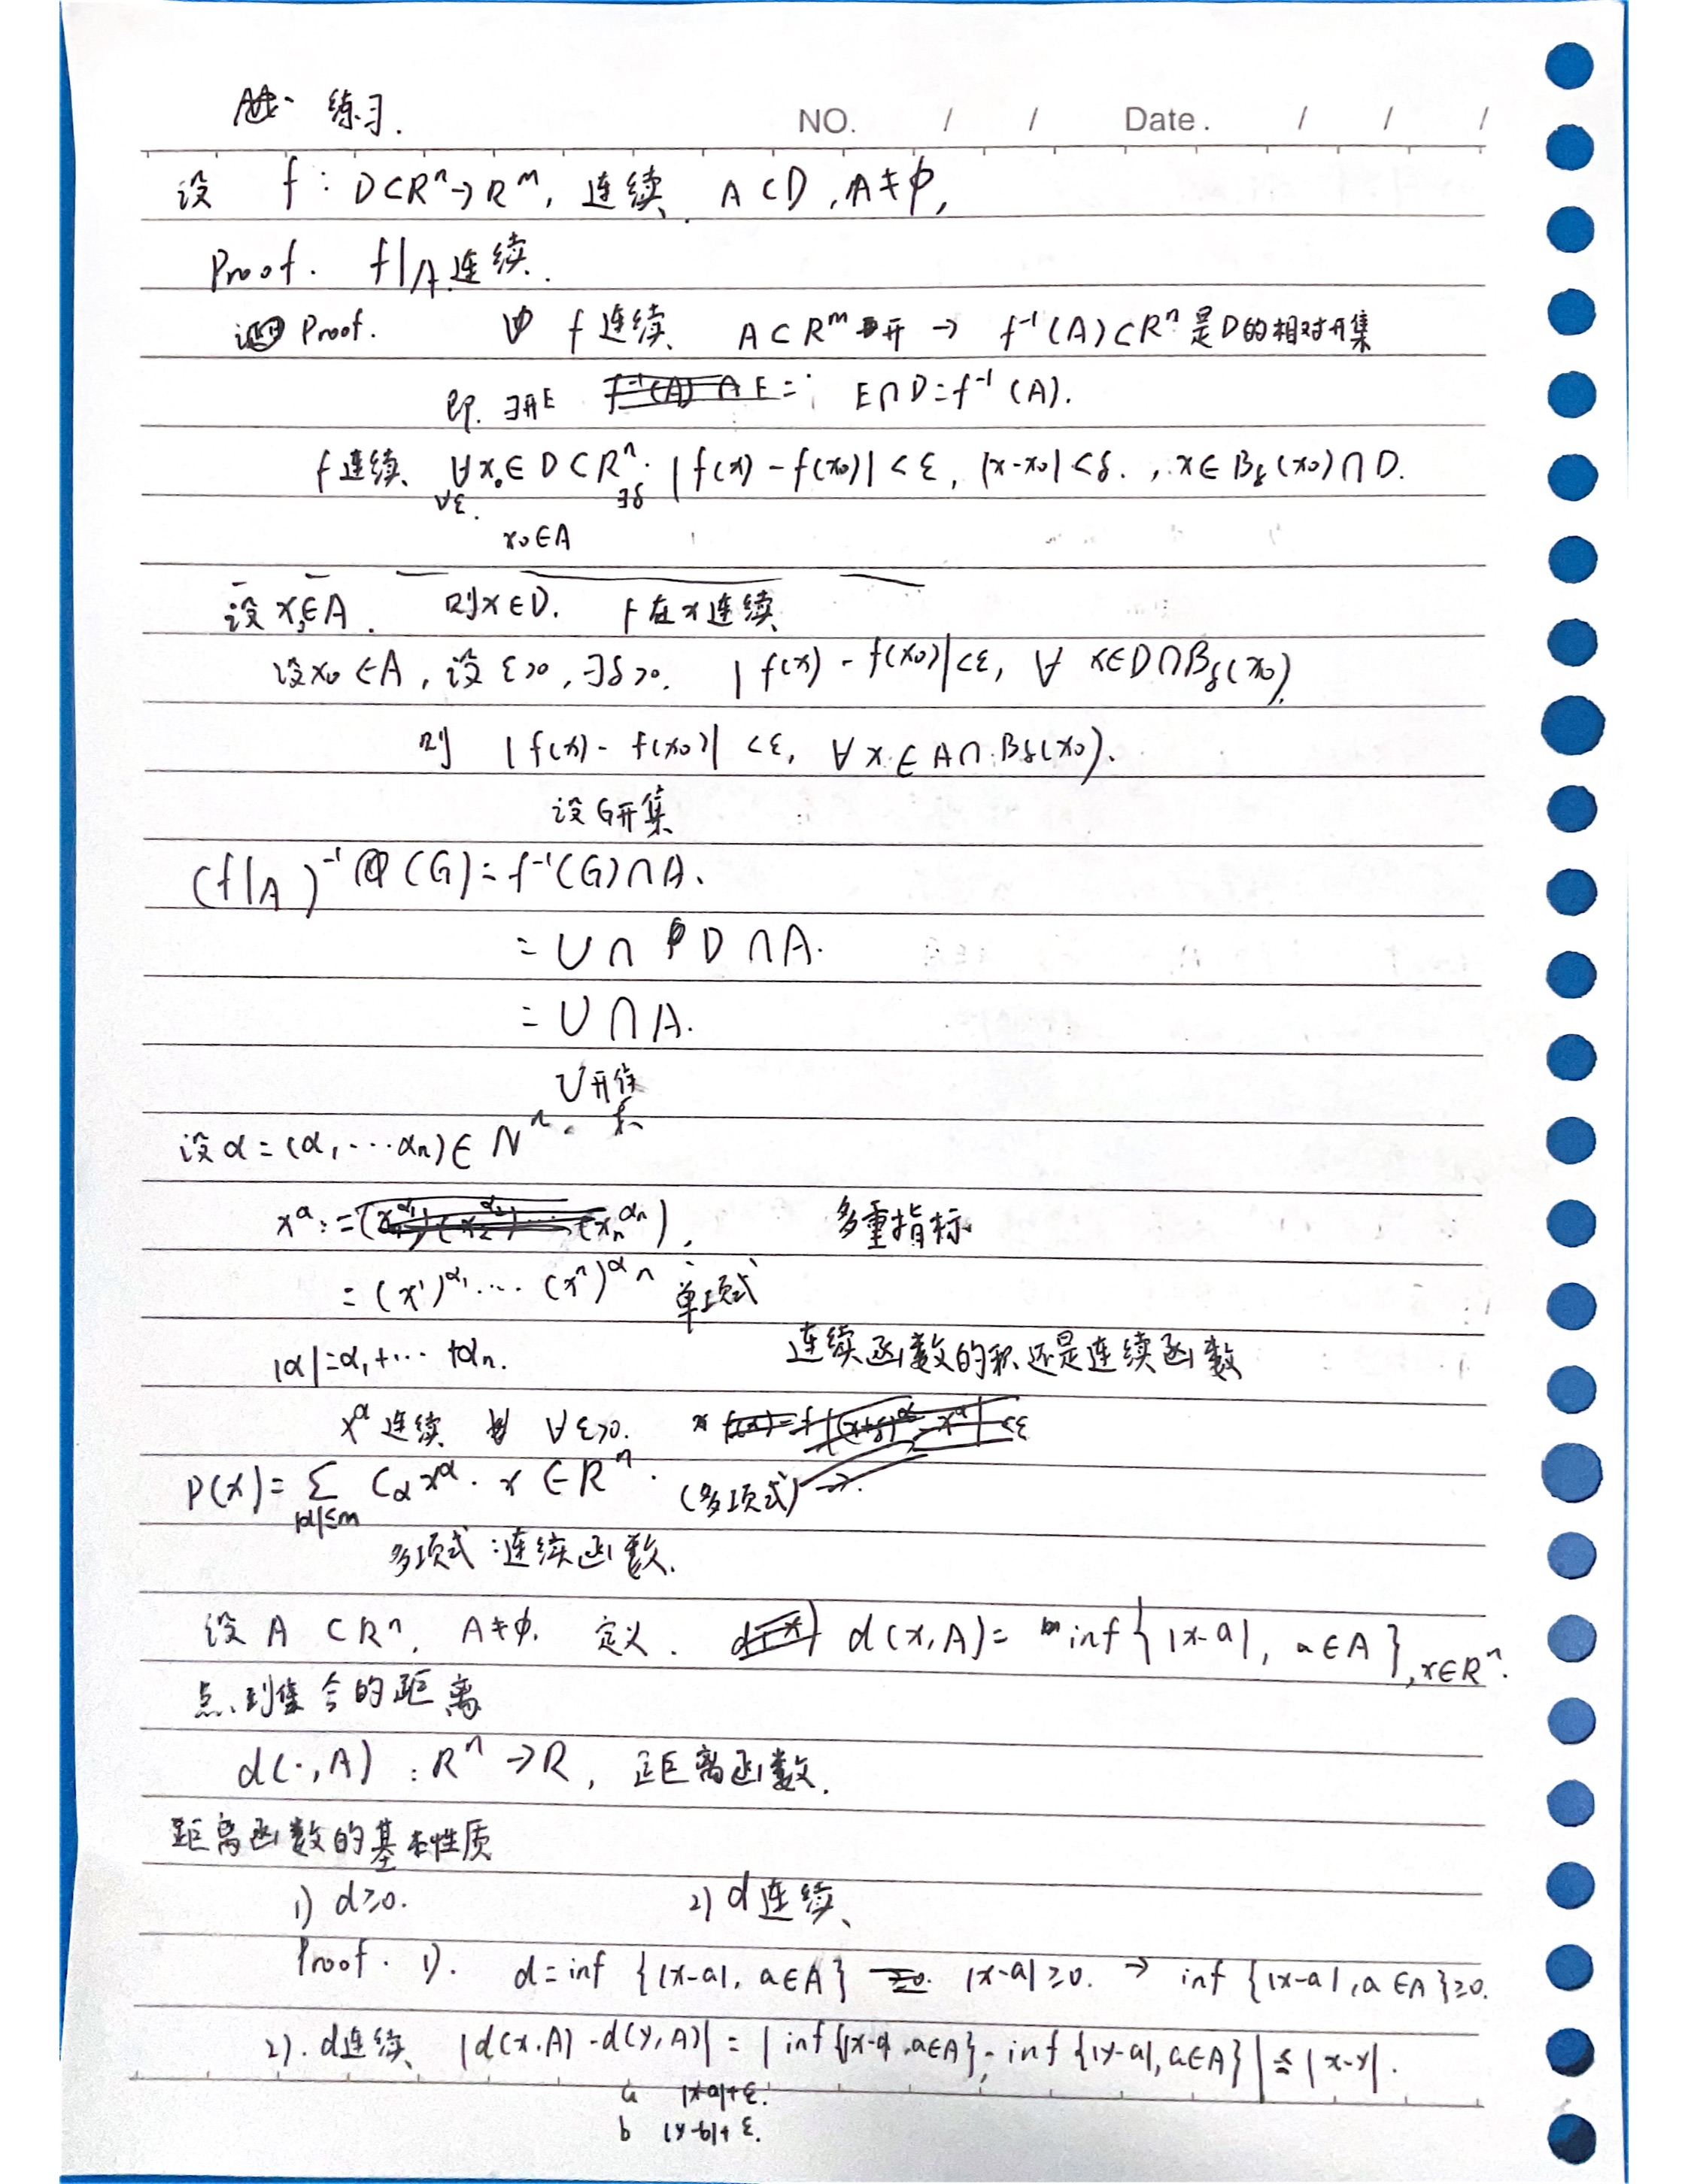 练习.
NO. / / Date. / / /
设 f : D⊂Rⁿ→Rᵐ, 连续. A⊂D, A≠ϕ,
Proof. f|A 连续.
Proof. f 连续. A⊂Rᵐ 开 → f⁻¹(A)⊂Rⁿ 是D的相对开集
即. ∃开E E∩D=f⁻¹(A).
f 连续. ∀x₀∈D⊂Rⁿ. |f(x)-f(x₀)|<ε, |x-x₀|<δ. , x∈Bδ(x₀)∩D.
∀ε. ∃δ
x₀∈A
设 x∈A. 则x∈D. f在x连续
设x₀∈A, 设 ε>0, ∃δ>0. |f(x)-f(x₀)|<ε, ∀ x∈D∩Bδ(x₀)
则 |f(x)-f(x₀)|<ε, ∀x∈A∩Bδ(x₀).
设G开集
(f|A)⁻¹(G)=f⁻¹(G)∩A.
= U∩D∩A.
= U∩A.
U开集
设α=(α₁,⋯αₙ)∈Nⁿ.
xᵅ:= 多重指标
=(x¹)^α₁⋯(xⁿ)^αₙ 单项式
|α|=α₁+⋯+αₙ. 连续函数的积还是连续函数
xᵅ连续 ∀ε>0.
P(x)=Σ Cαxᵅ. x∈Rⁿ. (多项式)
|α|≤m
多项式:连续函数.
设 A⊂Rⁿ, A≠ϕ. 定义. d(x,A)= inf{|x-a|, a∈A}, x∈Rⁿ.
点到集合的距离
d(·,A) : Rⁿ→R, 距离函数.
距离函数的基本性质
1) d≥0. 2) d连续.
Proof. 1). d=inf {|x-a|, a∈A} |x-a|≥0. → inf{|x-a|, a∈A}≥0.
2). d连续. |d(x,A)-d(y,A)|=|inf{|x-a|, a∈A}-inf{|y-a|, a∈A}|≤|x-y|.
a |x-a|+ε.
b |y-b|+ε.